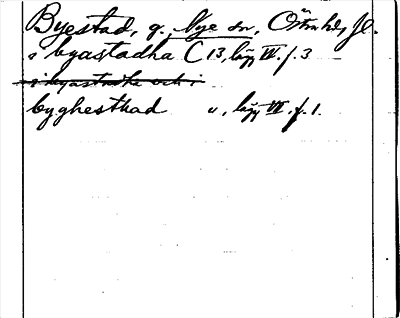 Byestad, g. Nye sn, Östra hd, Jl.
i byastadha C 13, lägg VI. f. 3 –
i byastadha och i
byghesthad u, lägg VI. f. 1.